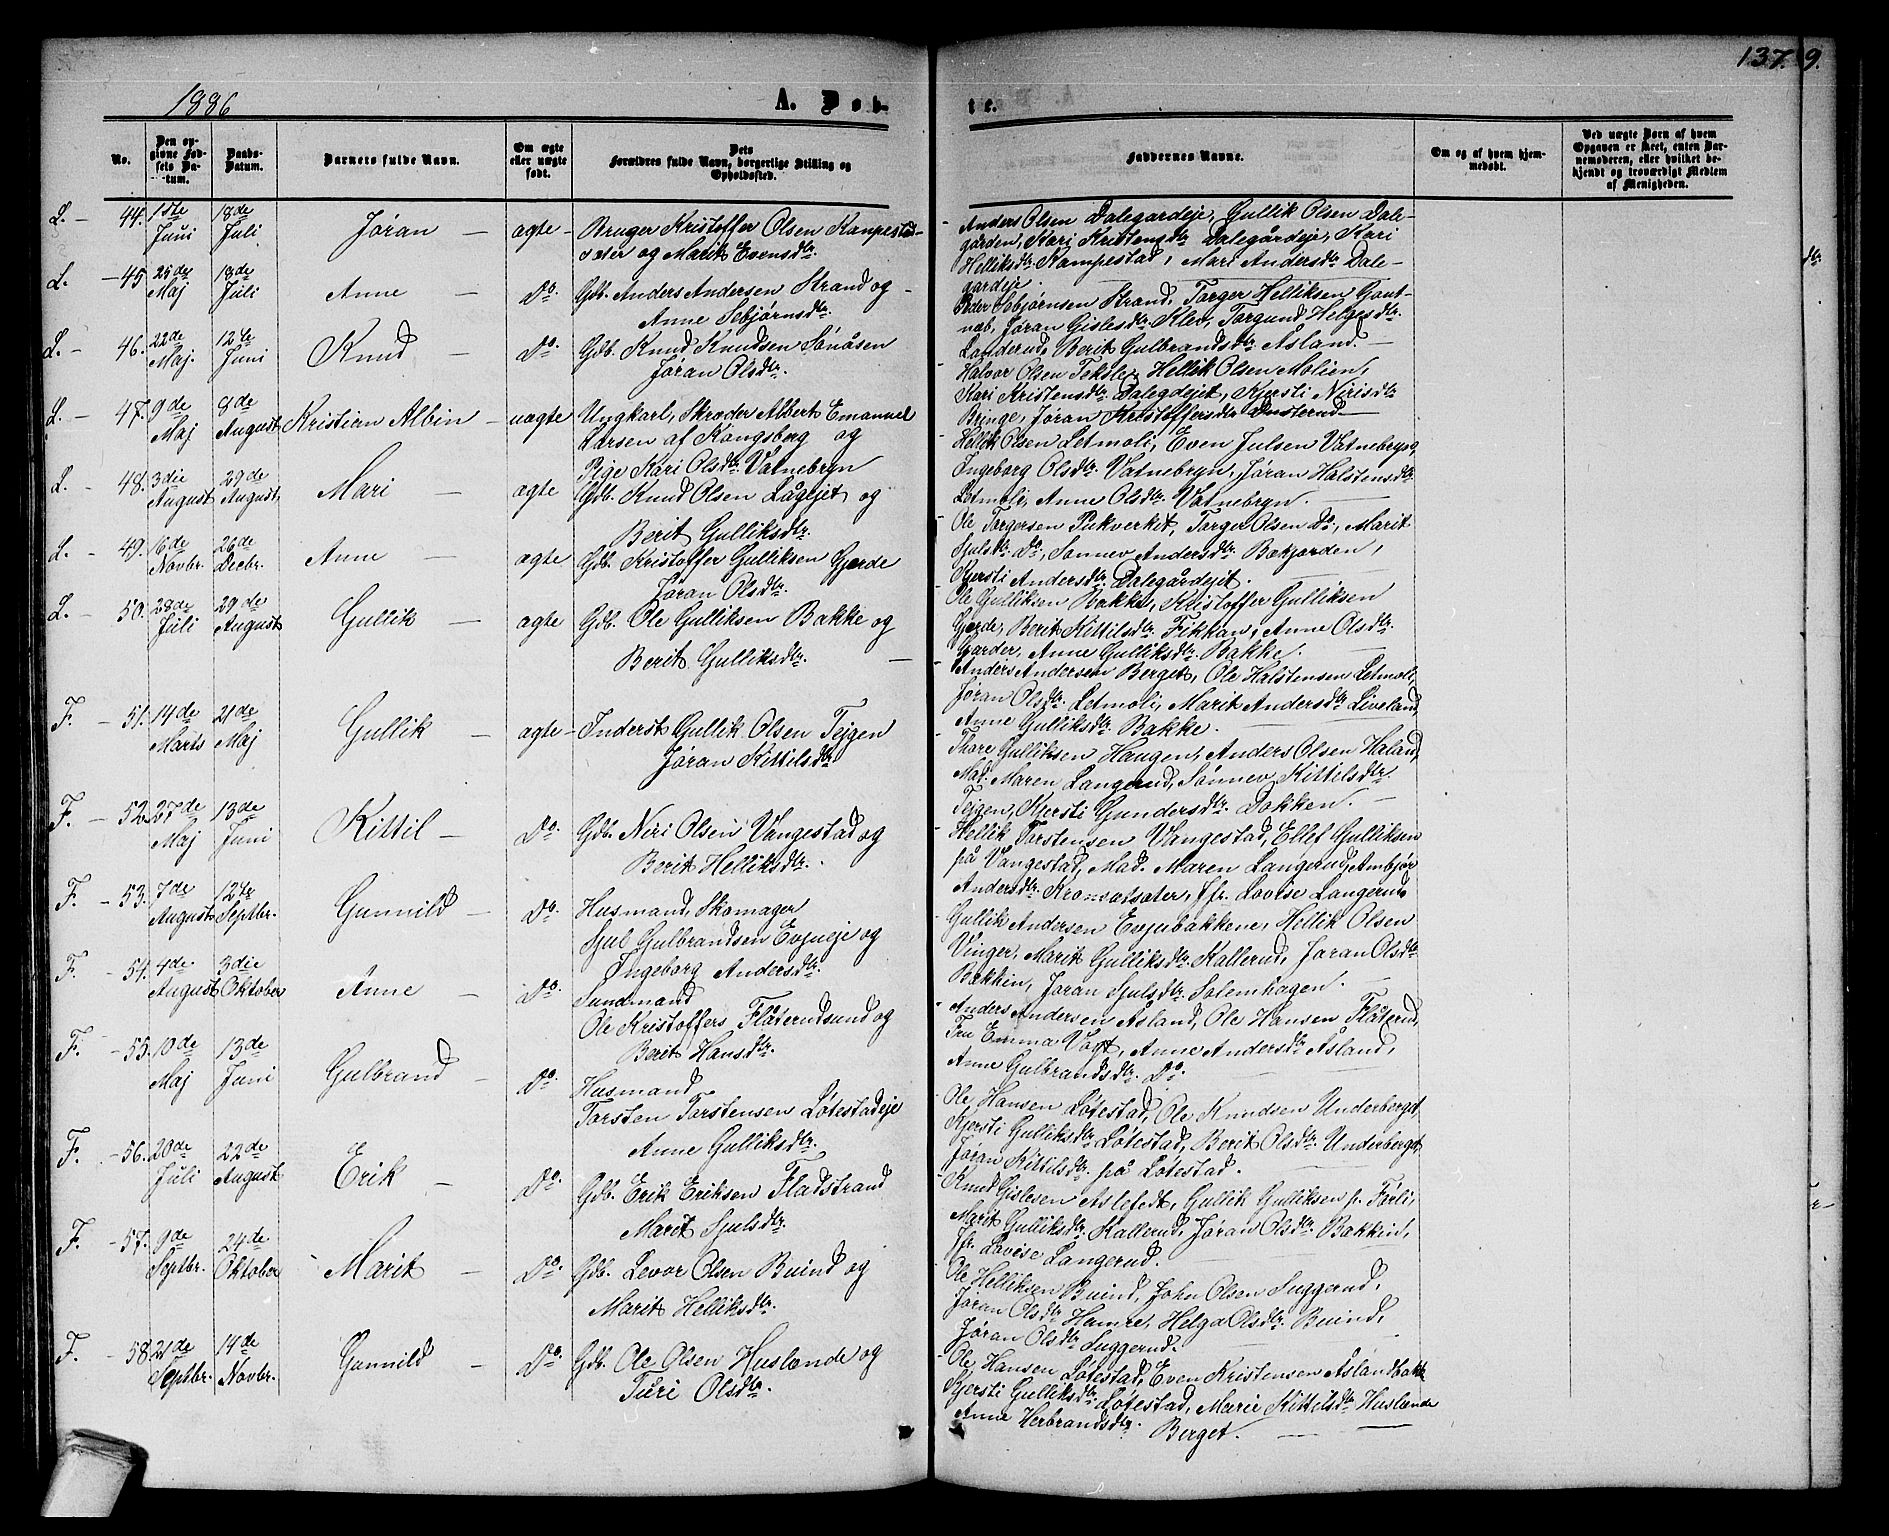 1886
A. Døb-
te.
137. 9.
No.
Den op-
givne Fød-
sels Da-
tum.
Daabs-
Datum.
Barnets fulde Navn.
Om ægte
eller uægte
født.
Dets
Forældres fulde Navn, borgerlige Stilling og
Opholdssted.
Faddernes Navne.
Om og af hvem hjem-
medøbt.
Ved uægte Børn af hvem
Opgaven er skeet, enten Bar-
nemoderen, eller hvilket be-
kjendt og troværdigt Medlem
af Menigheden.
L. - 44. 1ste Juni 18de Juli. Jøran - ægte -
Bruger Kristoffer Olsen Kampestad-
sæter og Marit Evensdtr.
Anders Olsen Dalegardeje, Gullik Olsen Dale-
garden, Kari Kristensdtr Dalegårdeje, Kari
Helliksdtr Kampestad, Mari Andersdtr Dale-
gardeje.
L. - 45 25de Maj 18de Juli Anne - Do.
Gdb. Anders Andersen Strand og -
Anne Sebjørnsdtr.
Peder Sebjørnsen Strand, Targer Helliksen Gout-
næb, Jøran Gislesdtr Klev, Targund Helgesdtr.
Landerud, Berit Gulbrandsdtr Åsland. -
L. - 46. 22de Maj. 12te Juni Knud - Do.
Gdb. Knud Knudsen Sønåsen
Jøran Olsdtr.
Halvor Olsen Teksle, Hellik Olsen Molien,
Kari Kristensdtr. Dalegdejet, Kjersti Nirisdtr
Bringe, Jøran Kristoffersdtr Dusterud -
L. - 47. 9de Maj 8de August Kristian Albin - uægte
Ungkarl, Skræder Albert Emanuel
Larsen af Kongsberg og
Pige Kari Olsdtr. Vatnebryn
Hellik Olsen Letmoli, Even Julsen Vatnebryn,
Ingeborg Olsdtr. Vatnebryn, Jøran Halstensdtr.
Letmoli, Anne Olsdtr. Vatnebryn.
L. - 48. 3die August 29de August, Mari - ægte
Gdb. Knud Olsen Lågejet og
Berit Gulliksdtr.
Ole Torgersen Pukverket, Targer Olsen Do., Marit
Sjulsdtr. Do, Sønnev Andersdtr. Bekjorden,
Kjersti Andersdtr. Dalegårdejet.
L. - 49. 16de Novbr. 26de Decbr. Anne - ægte
Gdb. Kristoffer Gulliksen Gjerde
Jøran Olsdtr.
Ole Gulliksen Bakke, Kristoffer Gulliksen
Gjerde, Berit Kittilsdtr. Fikkan, Anne Olsdtr.
Garder, Anne Gulliksdtr. Bakke.
L. - 50. 28de Juli 29de August Gullik - ægte
Gdb. Ole Gulliksen Bakke og
Berit Gulliksdtr. -
Anders Andersen Berget, Ole Halstensen Letmoli,
Jøran Olsdtr. Letmoli, Marit Andersdtr Liveland,
Anne Gulliksdtr. Bakke.
F. - 51. 14de Marts 21de Maj Gullik - ægte -
Inderst Gullik Olsen Tejgen
Jøran Kittilsdtr
Thore Gulliksen Haugen, Anders Olsen Haland,
Mad. Maren Langerud, Sønnev Kittelsdtr.
Tejgen, Kjersti Gundersdtr. Dokken. -
F. - 52. 27de Maj 13de Juni Kittil - Do.
Gdb. Niri Olsen Vangestad og
Berit Helliksdtr.
Hellik Torstensen Vangestad, Ellef Gulliksen
på Vangestad, Mad. Maren Langerud, Ambjør
Andersdtr. Kronsætsæter, jfr. Lovise Langerud
F. - 53. 7de August 12te Septbr. Gunnild - Do.
Husmand, Skomager
Sjul Gulbrandsen Evjueje og
Ingeborg Andersdtr.
Gullik Andersen Evjubakkene, Hellik Olsen
Vinger, Marit Gulliksdtr. Kallerud, Jøran Olsdtr
Bakkin, Jøran Sjulsdtr. Solemhagen.
F. - 54. 4de August 3die Oktober Anne - Do.
Sundmand
Ole Kristoffers. Flåterudsund og
Berit Hansdtr.
Anders Andersen Åsland, Ole Hansen Flåterud,
Fru Emma Vogt, Anne Andersdtr. Åsland,
Anne Gulbrandsdtr. Do.
F. - 55. 10de Maj 13de Juni Gulbrand - Do.
Husmand
Torsten Torstensen Løtestadeje
Anne Gulliksdtr.
Ole Hansen Løtestad, Ole Knudsen Underberget,
Kjersti Gulliksdtr. Løtestad, Berit Olsdtr. Underberget,
Jøran Kittilsdtr. på Løtestad.
F. - 56. 20de Juli 22de August Erik - Do.
Gdb. Erik Eriksen Fladstrand
Marit Sjulsdtr.
Knud Gislesen Aslefedt, Gullik Gulliksen p. Førli,
Marit Gulliksdtr. Kallerud, Jøran Olsdtr. Bakkin,
jfr. Lovise Langerud.
F. - 57. 9de Septbr. 24de Oktober Marit - Do.
Gdb. Levor Olsen Buind og
Marit Helliksdtr.
Ole Helliksen Buind, John Olsen Suggerud,
Jøran Olsdtr Hamre, Helga Olsdtr. Buind,
Jøran Olsdtr. Suggerud.
F. - 58. 21de Septbr. 14de Novbr. Gunnild - Do.
Gdb. Ole Olsen Huslænde og
Turi Olsdtr.
Ole Hansen Løtestad, Even Kristensen Åslandbakk
Kjersti Gulliksdtr. Løtestad, Marie Kittilsdtr. Huslænde
Anne Herbrandsdtr.
Berget. -